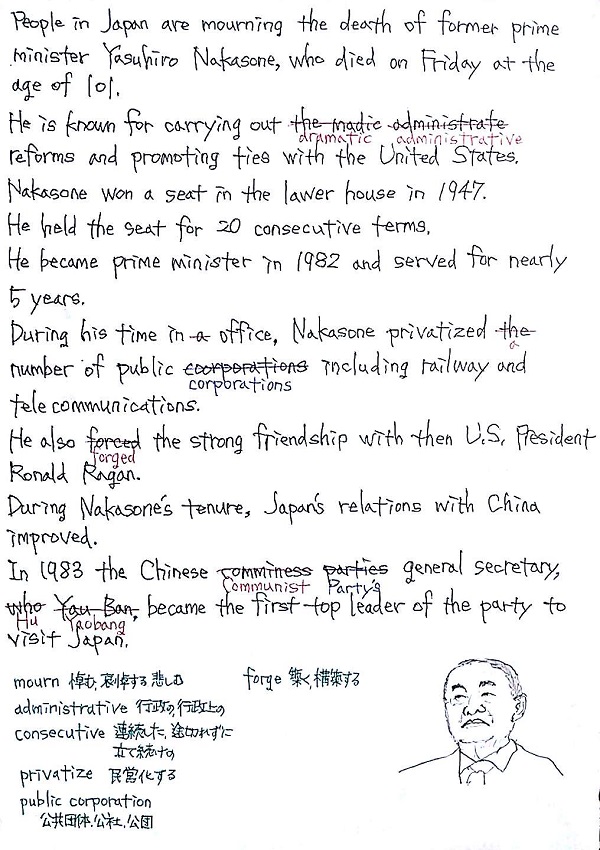 People in Japan are mourning the death of former prime
minister Yasuhiro Nakasone, who died on Friday at the
age of 101.
He is known for carrying out the madic administrate
dramatic administrative
reforms and promoting ties with the United States.
Nakasone won a seat in the lawer house in 1947.
He held the seat for 20 consecutive terms.
He became prime minister in 1982 and served for nearly
5 years.
During his time in a office, Nakasone privatized the
a
number of public coorporations including railway and
corporations
tele communications.
He also forced the strong friendship with then U.S. President
forged
Ronald Ragan.
During Nakasone's tenure, Japan's relations with China
improved.
In 1983 the Chinese comminess parties general secretary,
Communist Party's
who Yau Ban, became the first top leader of the party to
Hu Yaobang
visit Japan.
mourn 悼む, 哀悼する 悲しむ forge 築く, 構築する
administrative 行政の, 行政上の
consecutive 連続した, 途切れずに
立て続けの
privatize 民営化する
public corporation
公共団体, 公社, 公団